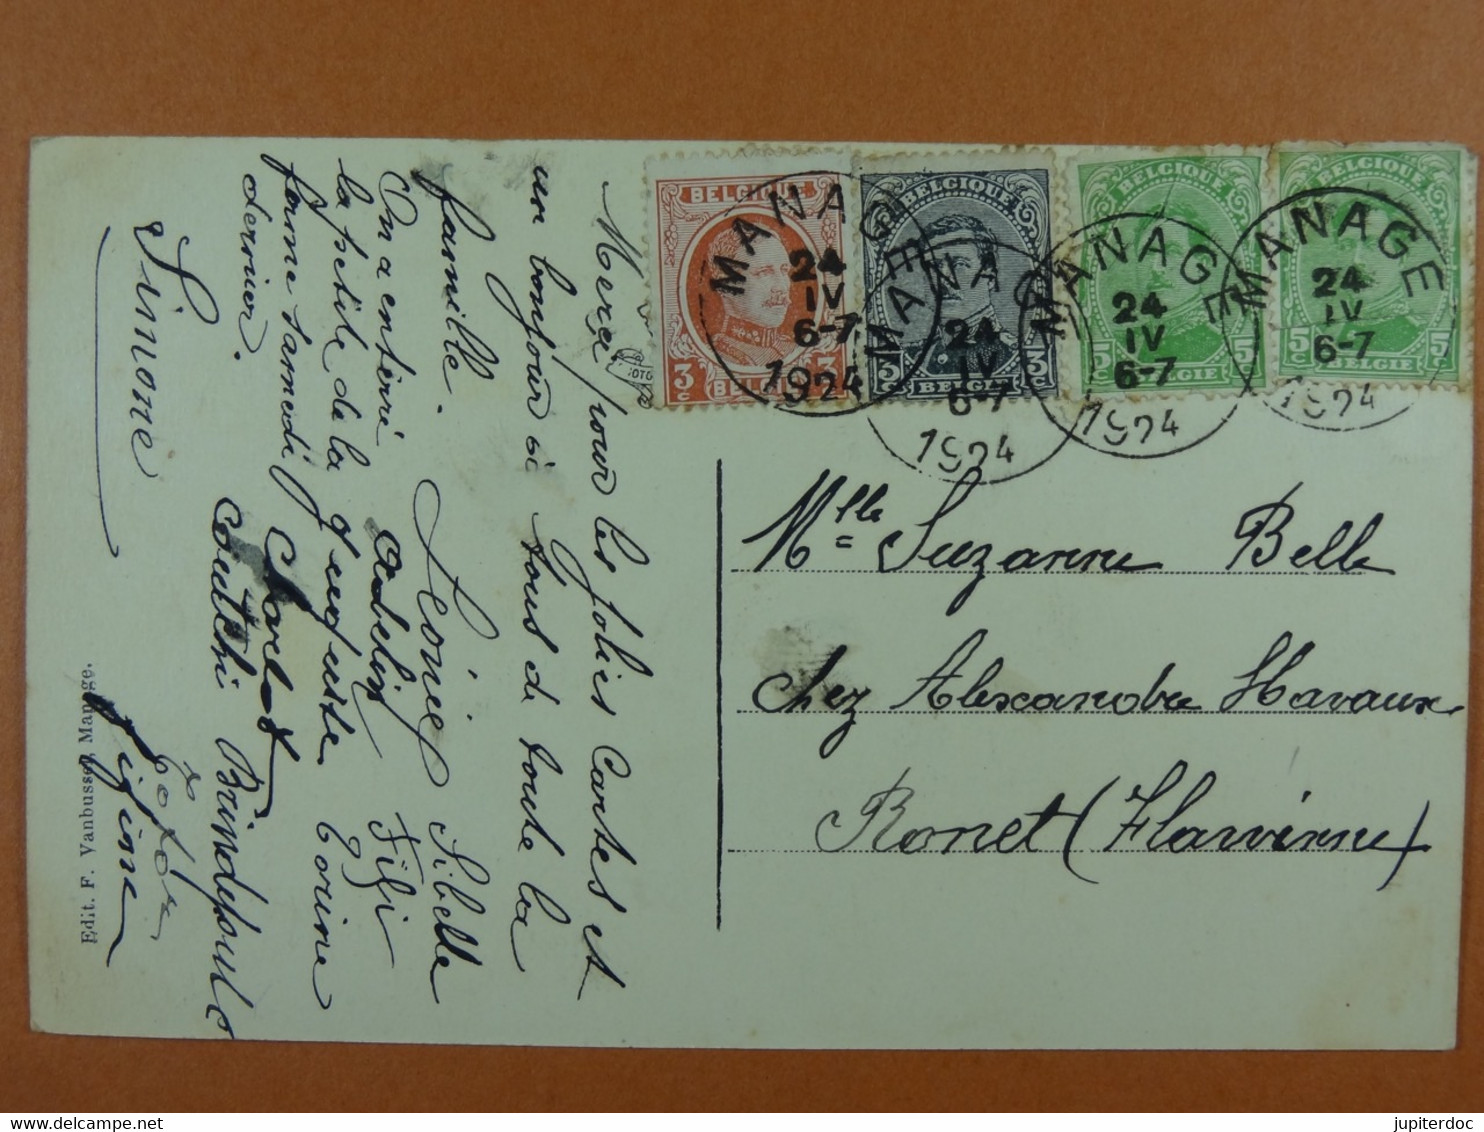 Merci pour les jolies cartes et
un bonjour à tous de toute la
famille.
Léonie Sibelle
On a enterré
Fifi
la petite de la
femme samedi
dernier.
Simone
Charlot
Edit. F. Vanbussel, Manage.
BELGIQUE
3c 3c
BELGIË
BELGIQUE
3c 3c
BELGIË
BELGIQUE
5c 5c
BELGIE
BELGIQUE
5c 5c
BELGIE
MANAGE
24
IV
6-7
1924
MANAGE
24
IV
6-7
1924
MANAGE
24
IV
6-7
1924
MANAGE
24
IV
6-7
1924
Mlle Suzanne Belle
chez Alexandre Havaux
Ronet (Flawinne)
jupiterdoc
delcampe.net